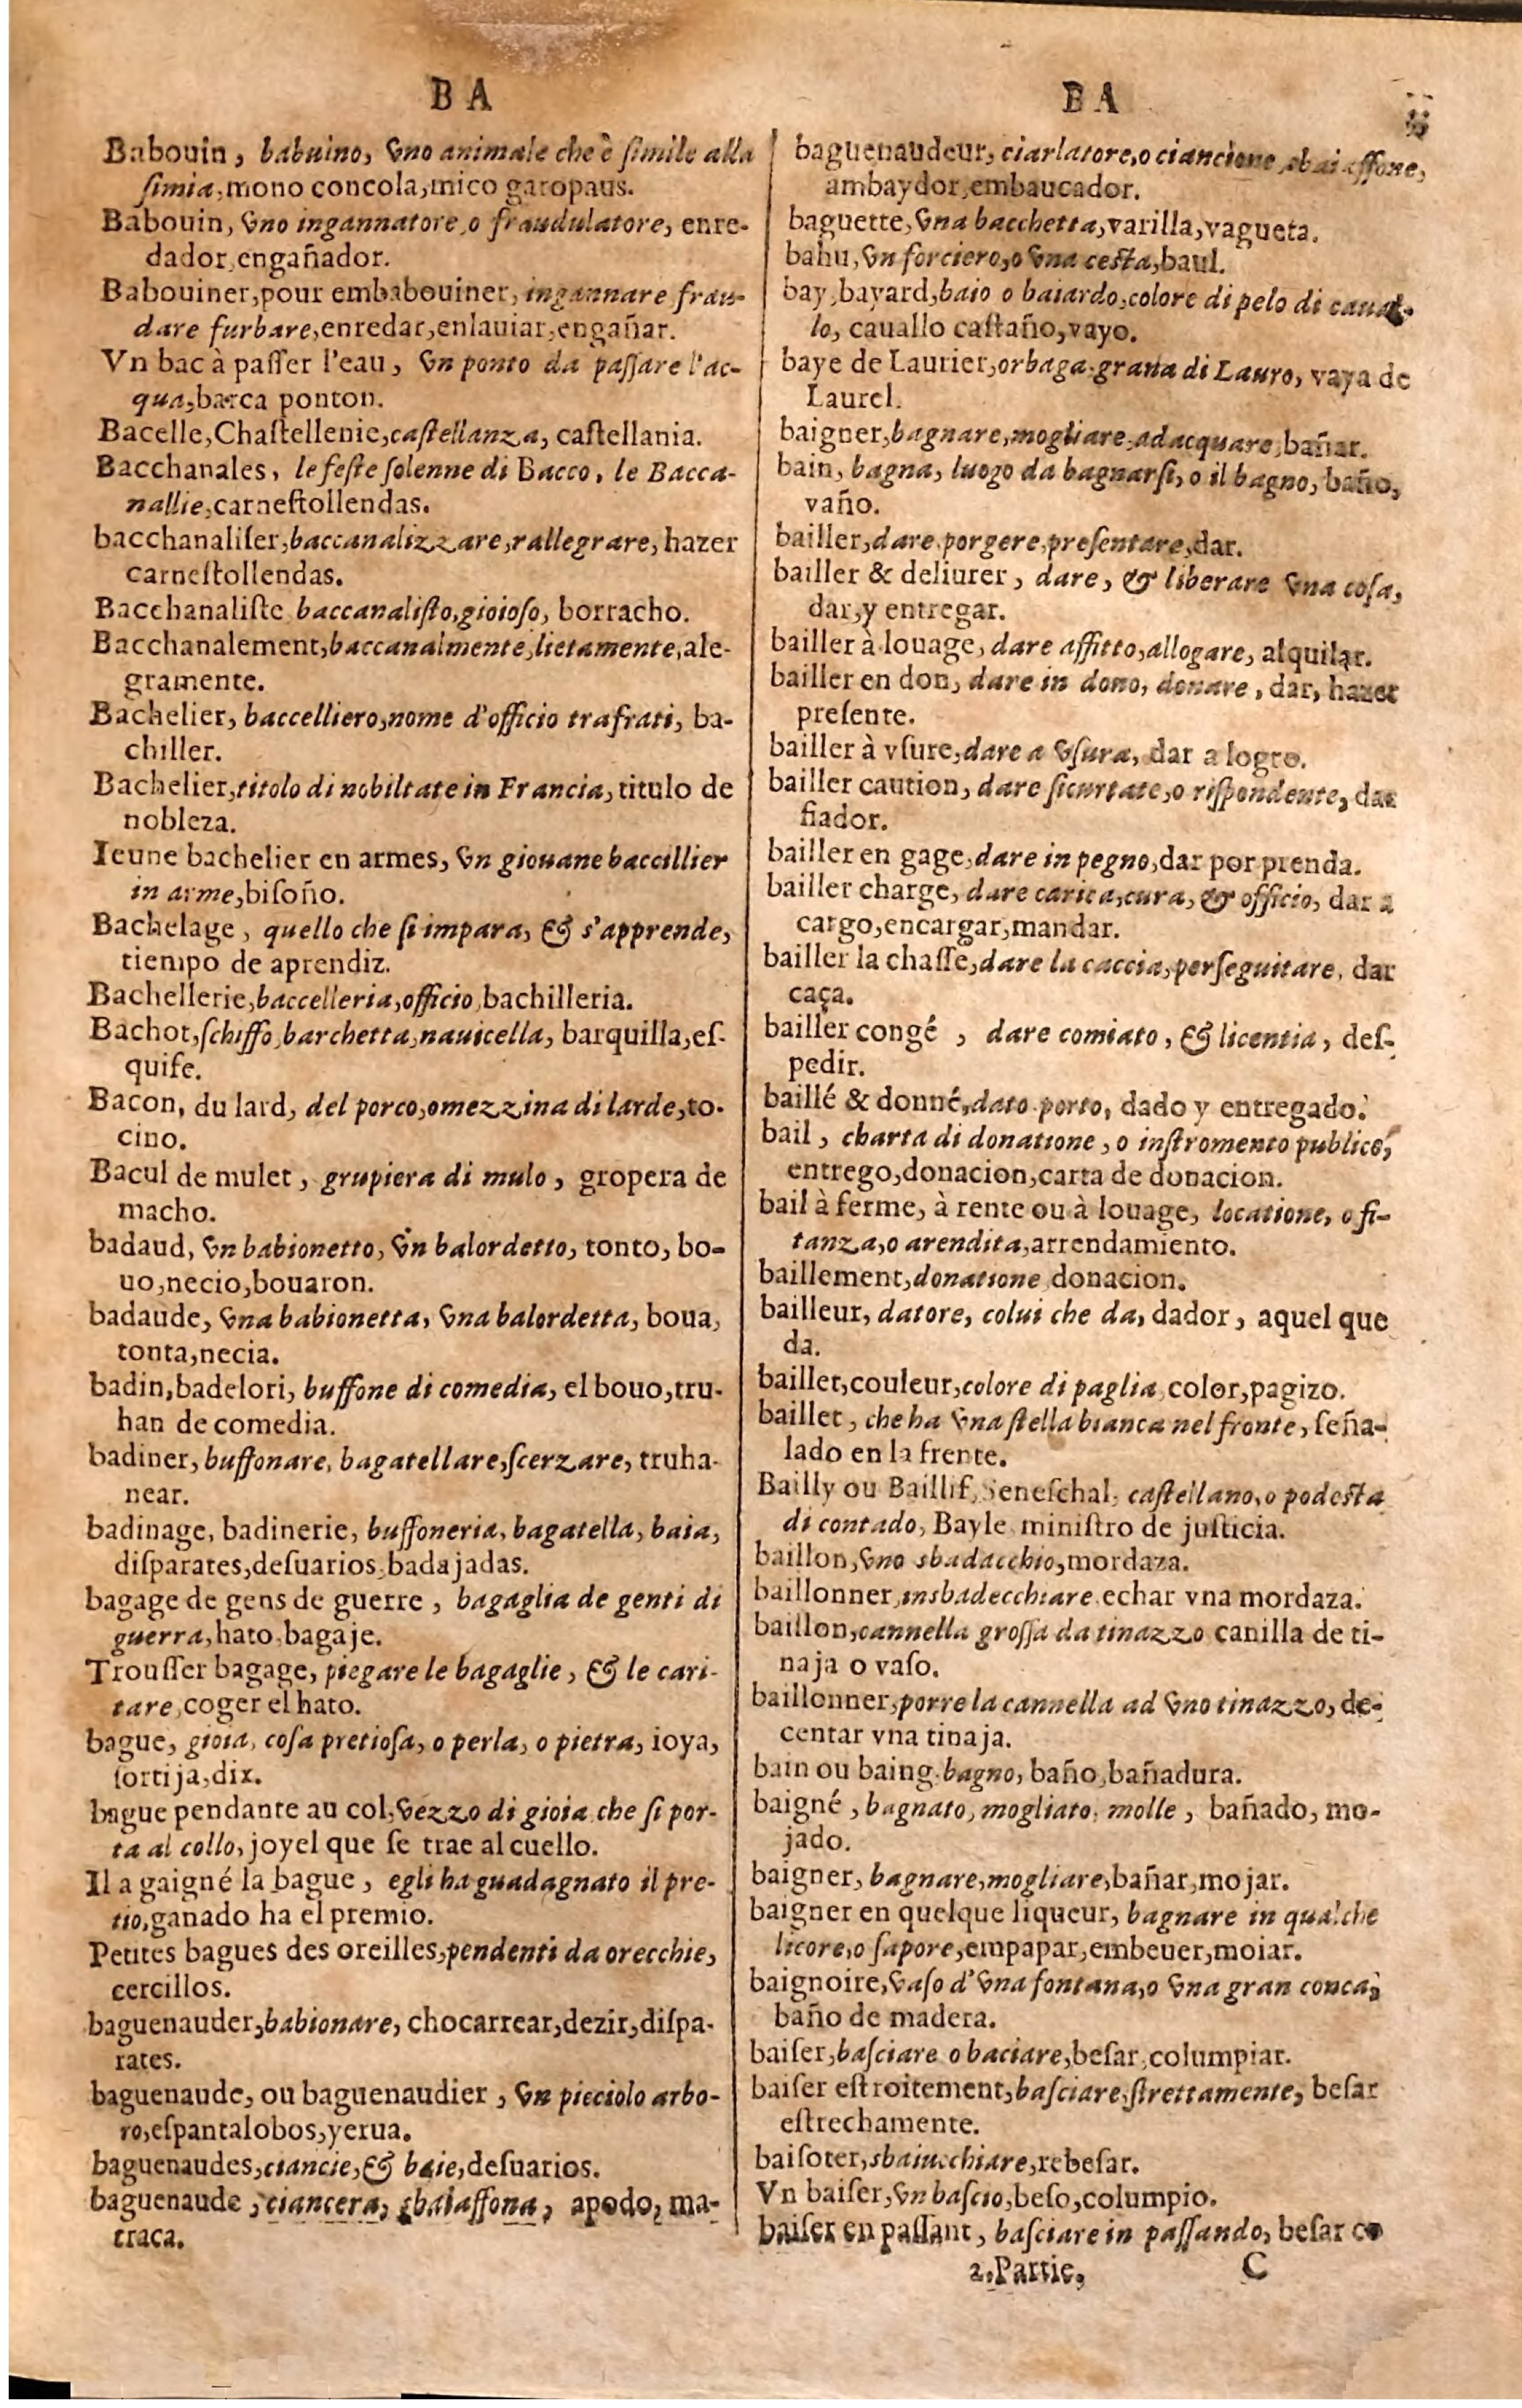 BA
Babouin, babuino, vno animale che è ſimile alla
ſimia, mono concola, mico garopaus.
Babouin, vno ingannatore, o fraudulatore, enre-
dador, engañador.
Babouiner, pour embabouiner, ingannare frau-
dare furbare, enredar, enlauiar, engañar.
Vn bac à paſſer l'eau, vn ponto da paſſare l'ac-
qua, barca ponton.
Bacelle, Chaſtellenie, caſtellanza, caſtellania.
Bacchanales, le feſte ſolenne di Bacco, le Bacca-
nallie, carneſtollendas.
bacchanaliſer, baccanalizzare, rallegrare, hazer
carneſtollendas.
Bacchanaliſte baccanaliſto, gioioſo, borracho.
Bacchanalement, baccanalmente, lietamente, ale-
gramente.
Bachelier, baccelliero, nome d'officio trafrati, ba-
chiller.
Bachelier, titolo di nobiltate in Francia, titulo de
nobleza.
Ieune bachelier en armes, vn giouane baccillier
in arme, biſoño.
Bachelage, quello che ſi impara, & s'apprende,
tiempo de aprendiz.
Bachellerie, baccelleria, officio, bachilleria.
Bachot, ſchiffo, barchetta, nauicella, barquilla, eſ-
quife.
Bacon, du lard, del porco, o mezzina di larde, to-
cino.
Bacul de mulet, grupiera di mulo, gropera de
macho.
badaud, vn babionetto, vn balordetto, tonto, bo-
uo, necio, bouaron.
badaude, vna babionetta, vna balordetta, boua,
tonta, necia.
badin, badelori, buffone di comedia, el bouo, tru-
han de comedia.
badiner, buffonare, bagatellare, ſcerzare, truha-
near.
badinage, badinerie, buffoneria, bagatella, baia,
diſparates, deſuarios, badajadas.
bagage de gens de guerre, bagaglia de genti di
guerra, hato, bagaje.
Trouſſer bagage, piegare le bagaglie, & le cari-
tare, coger el hato.
bague, gioia, coſa pretioſa, o perla, o pietra, ioya,
ſortija, dix.
bague pendante au col, vezzo di gioia che ſi por-
ta al collo, joyel que ſe trae al cuello.
Il a gaigné la bague, egli ha guadagnato il pre-
tio, ganado ha el premio.
Petites bagues des oreilles, pendenti da orecchie,
cercillos.
baguenauder, babionare, chocarrear, dezir, diſpa-
rates.
baguenaude, ou baguenaudier, vn piecíolo arbo-
ro, eſpantalobos, yerua.
baguenaudes, ciancie, & baie, deſuarios.
baguenaude, ciancera, sbaiaffona, apodo, ma-
traca.
BA
baguenaudeur, ciarlatore, o ciancione, sbaiaffone,
ambaydor, embaucador.
baguette, vna bacchetta, varilla, vagueta.
bahu, vn forciero, o vna ceſta, baul.
bay, bayard, baio o baiardo, colore di pelo di caual-
lo, cauallo caſtaño, vayo.
baye de Laurier, orbaga, grana di Lauro, vaya de
Laurel.
baigner, bagnare, mogliare, adacquare, bañar.
bain, bagna, luogo da bagnarſi, o il bagno, baño,
vaño.
bailler, dare, porgere, preſentare, dar.
bailler & deliurer, dare, & liberare vna coſa,
dar, y entregar.
bailler à louage, dare affitto, allogare, alquilar.
bailler en don, dare in dono, donare, dar, hazer
preſente.
bailler à vſure, dare a vſura, dar a logro.
bailler caution, dare ſicurtate, o riſpondente, dar
fiador.
bailler en gage, dare in pegno, dar por prenda.
bailler charge, dare carica, cura, & officio, dar a
cargo, encargar, mandar.
bailler la chaſſe, dare la caccia, perſeguitare, dar
caça.
bailler congé, dare comiato, & licentia, deſ-
pedir.
baillé & donné, dato porto, dado y entregado.
bail, charta di donatione, o inſtromento publico,
entrego, donacion, carta de donacion.
bail à ferme, à rente ou à louage, locatione, o fi-
tanza, o arendita, arrendamiento.
baillement, donatione, donacion.
bailleur, datore, colui che da, dador, aquel que
da.
baillet, couleur, colore di paglia, color, pagizo.
baillet, che ha vna ſtella bianca nel fronte, ſeña-
lado en la frente.
Bailly ou Baillif, Seneſchal, caſtellano, o podeſta
di contado, Bayle, miniſtro de juſticia.
baillon, vno sbadacchio, mordaza.
baillonner, insbadecchiare, echar vna mordaza.
baillon, cannella groſſa da tinazzo canilla de ti-
naja o vaſo.
baillonner, porre la cannella ad vno tinazzo, de-
centar vna tinaja.
bain ou baing, bagno, baño, bañadura.
baigné, bagnato, mogliato, molle, bañado, mo-
jado.
baigner, bagnare, mogliare, bañar, mojar.
baigner en quelque liqueur, bagnare in qualche
licore, o ſapore, empapar, embeuer, moiar.
baignoire, vaſo d'vna fontana, o vna gran conca,
baño de madera.
baiſer, baſciare o baciare, beſar, columpiar.
baiſer eſtroitement, baſciare, ſtrettamente, beſar
eſtrechamente.
baiſoter, sbaiucchiare, rebeſar.
Vn baiſer, vn baſcio, beſo, columpio.
baiſer en paſſant, baſciare in paſſando, beſar co
2. Partie. C